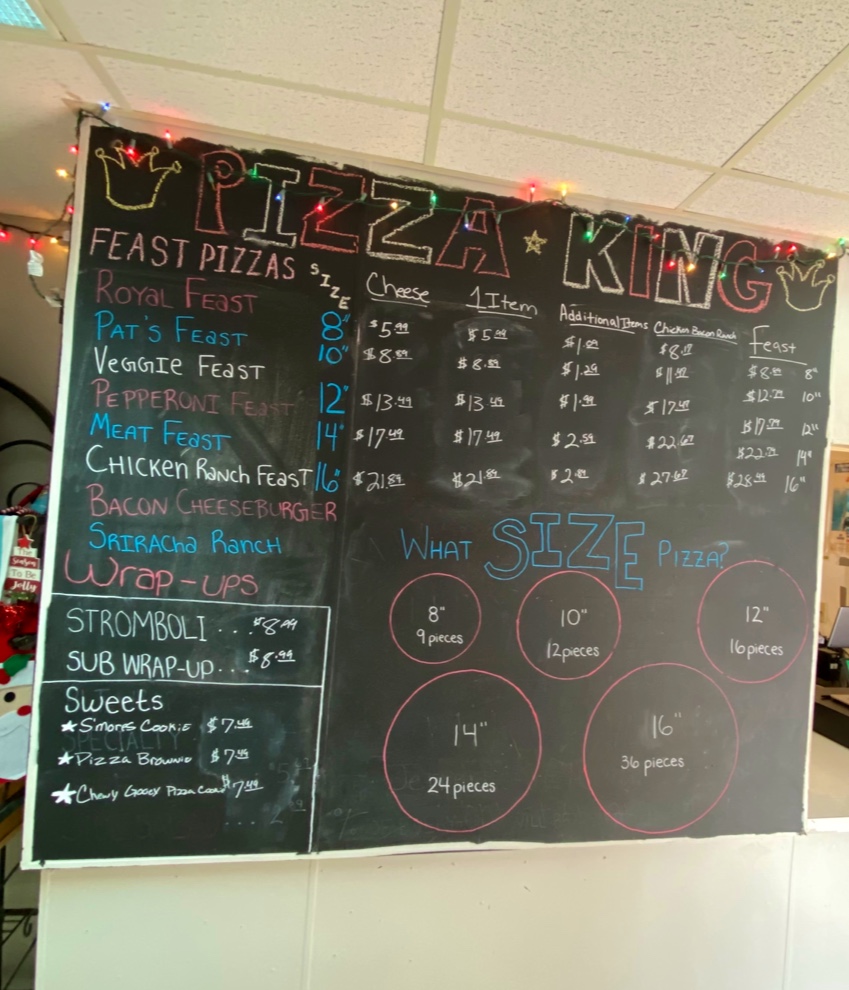 PIZZA KING
FEAST PIZZAS SIZE
Royal Feast 8"
Pat's Feast 10"
Veggie Feast
Pepperoni Feast 12"
Meat Feast 14"
Chicken Ranch Feast 16"
Bacon Cheeseburger
Sriracha Ranch
Wrap-ups
STROMBOLI ... $8.99
SUB WRAP-UP... $8.99
Sweets
S'mores Cookie $7.49
Pizza Brownie $7.49
Chewy Gooey Pizza $7.49
Cheese 1 Item Additional Items Chicken Bacon Ranch Feast
$5.99 $5.99 $1.09 $8.17 8"
$8.89 $8.89 $1.29 10"
$13.49 $13.49 $1.99 $17.47 12"
$17.49 $17.49 $2.59 $22.67 14"
$21.89 $21.89 $27.67 $28.49 16"
WHAT SIZE PIZZA?
8"
9 pieces
10"
12 pieces
12"
16 pieces
14"
24 pieces
16"
36 pieces
SPECIALTY
The
Season
To Be
Jolly